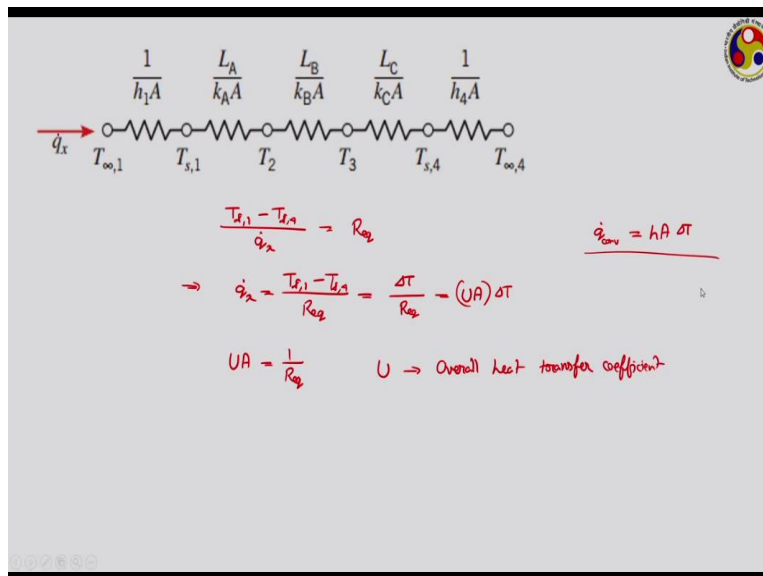 1/(h₁A) L_A/(k_A A) L_B/(k_B A) L_C/(k_C A) 1/(h₄A)
q̇ₓ T∞,1 Tₛ,1 T₂ T₃ Tₛ,4 T∞,4
(Tₛ,1 − Tₛ,4)/q̇ₓ = R_eq
q̇_conv = hA ΔT
⇒ q̇ₓ = (Tₛ,1 − Tₛ,4)/R_eq = ΔT/R_eq = (UA) ΔT
UA = 1/R_eq U → Overall heat transfer coefficient